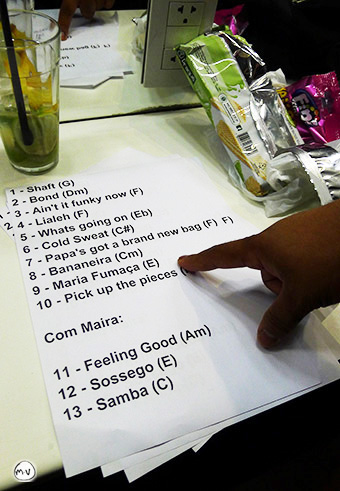 1 - Shaft (G)
2 - Bond (Dm)
3 - Ain't it funky now (F)
4 - Lialeh (F)
5 - Whats going on (Eb)
6 - Cold Sweat (C#)
7 - Papa's got a brand new bag (F) F)
8 - Bananeira (Cm)
9 - Maria Fumaça (E)
10 - Pick up the pieces
Com Maira:
11 - Feeling Good (Am)
12 - Sossego (E)
13 - Samba (C)
MV